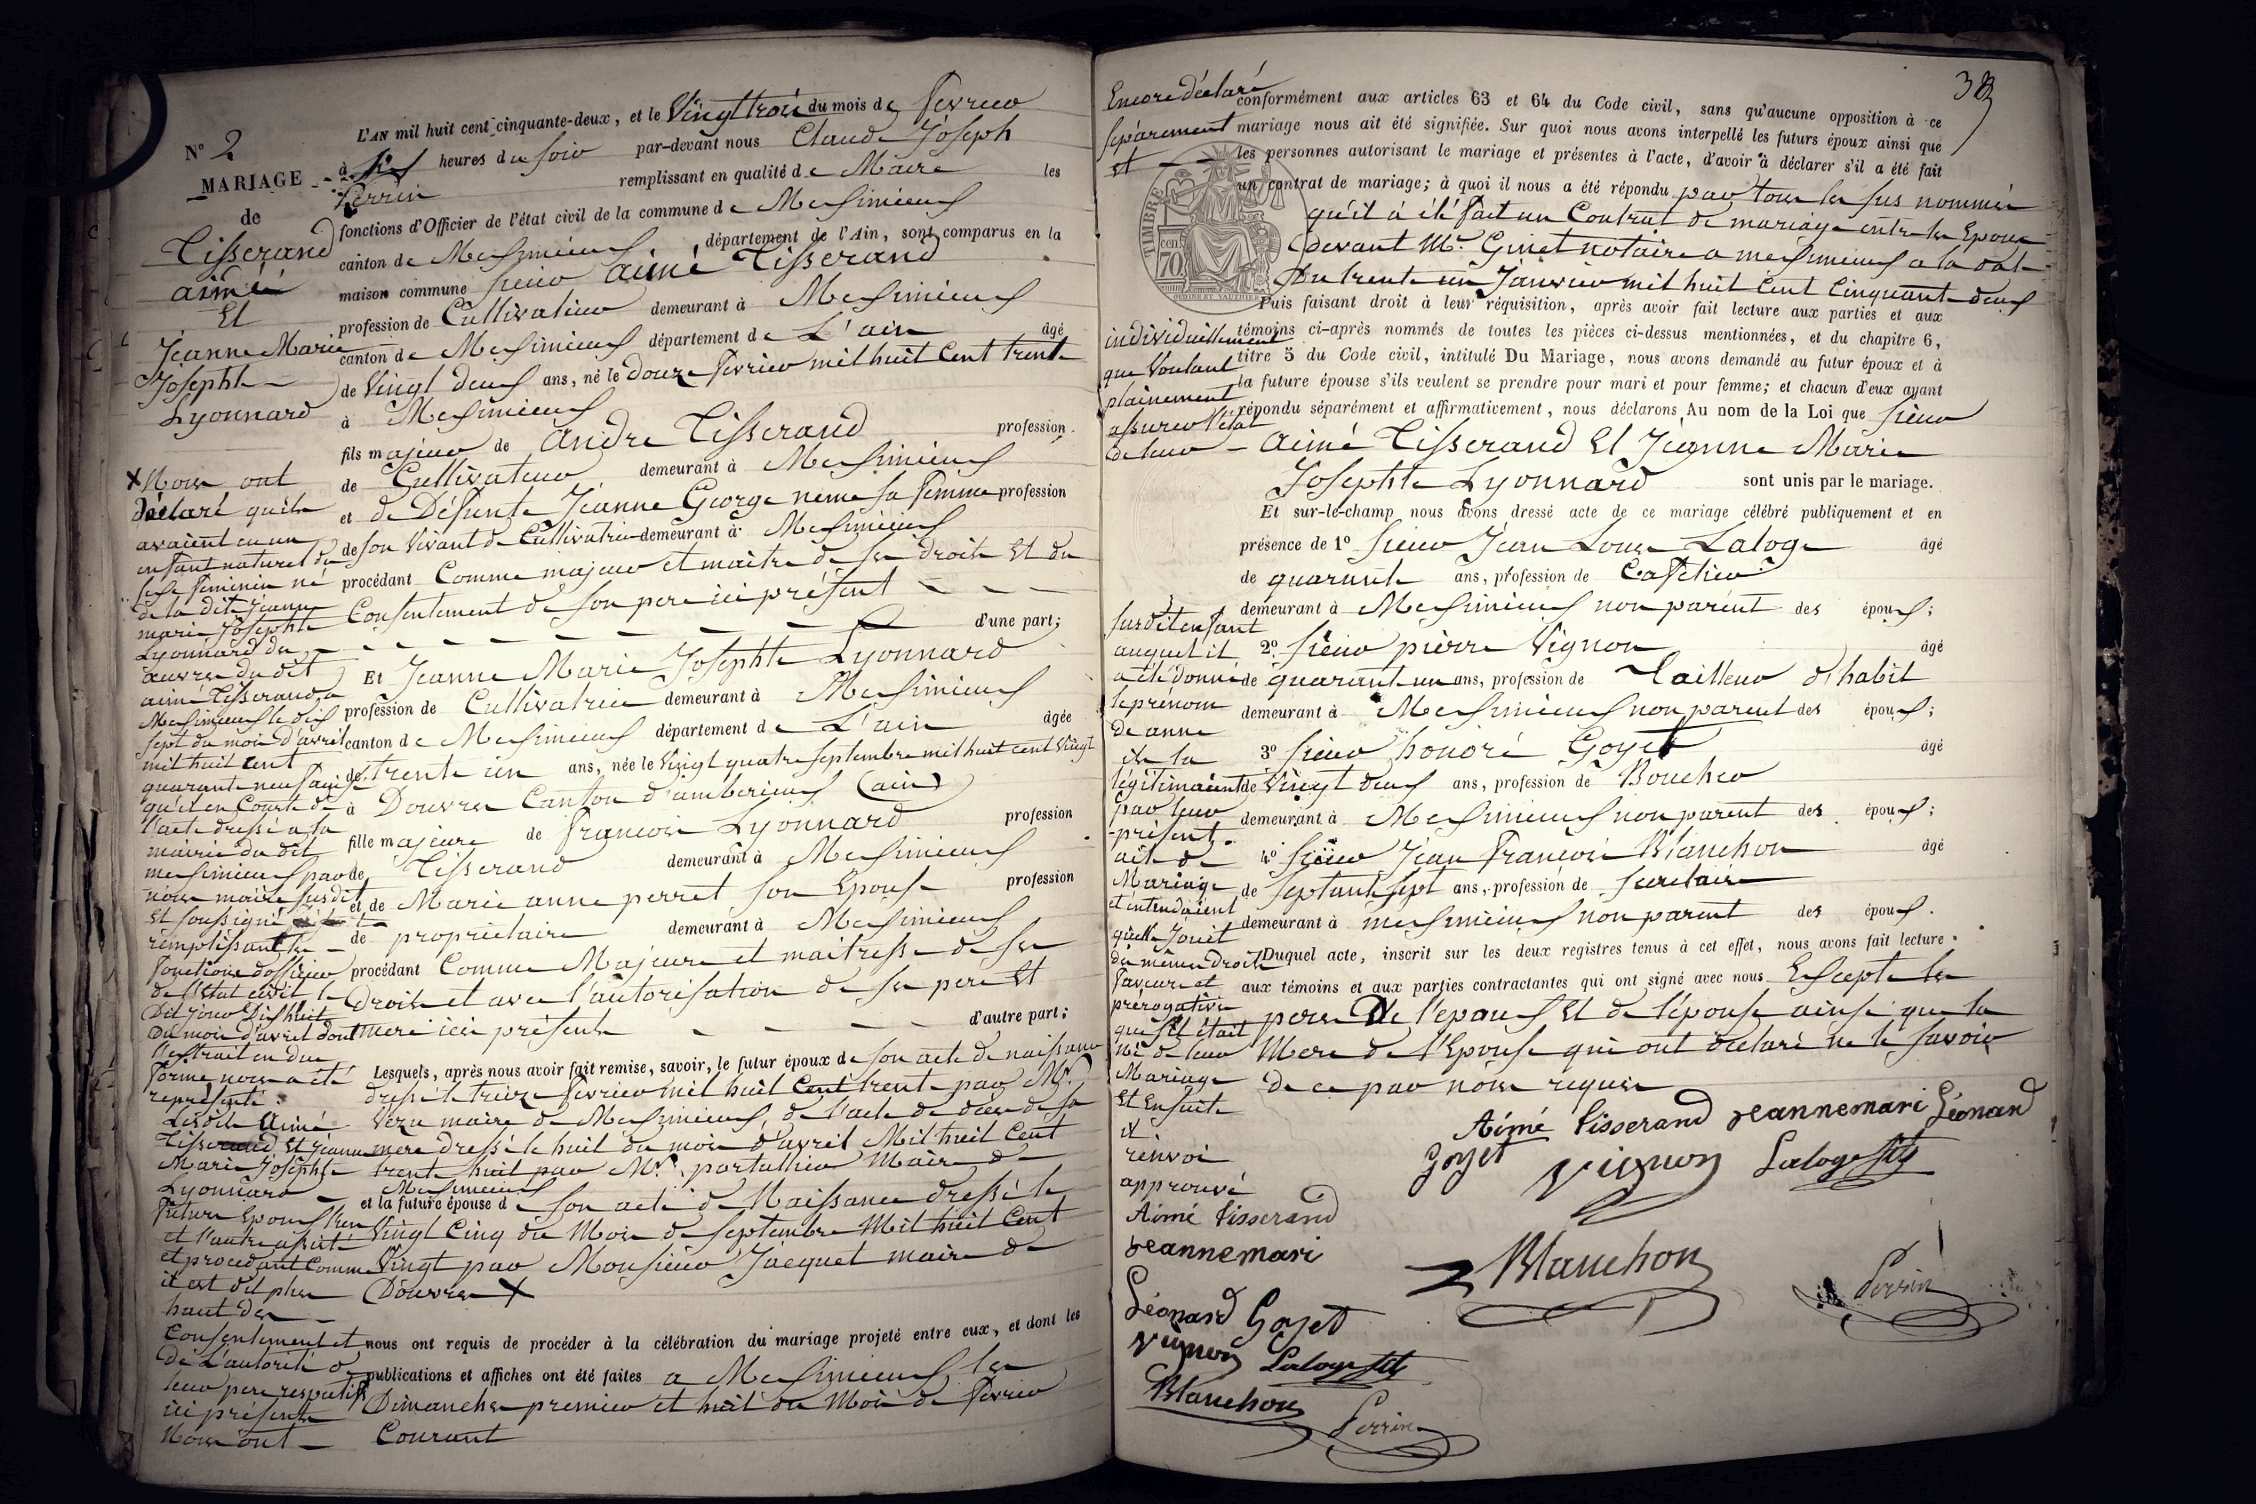 N° 2
MARIAGE
de
Tisserand
aimé
Et
Jeanne Marie
Josephte
Lyonnard
L'AN mil huit cent cinquante-deux, et le Vingt trois du mois de Fevrier
à six heures du soir par-devant nous Claude Joseph
Perrin remplissant en qualité de Maire les
fonctions d'Officier de l'état civil de la commune de Meximieux
canton de Meximieux, département de l'Ain, sont comparus en la
maison commune sieur aimé Tisserand
profession de Cultivateur demeurant à Meximieux
canton de Meximieux département de L'ain âgé
de Vingt deux ans, né le douze Fevrier mil huit Cent trente
à Meximieux
fils majeur de andré Tisserand profession
de Cultivateur demeurant à Meximieux
et de Défunte Jeanne George neme sa Femme profession
de son Vivant de Cultivatrice demeurant à Meximieux
procédant Comme majeur et maitre de ses droits Et du
Consentement de son pere ici présent
d'une part;
Et Jeanne Marie Josephte Lyonnard
profession de Cultivatrice demeurant à Meximieux
canton de Meximieux département de L'ain âgée
de trente un ans, née le Vingt quatre septembre mil huit cent Vingt
à Douvres Canton d'amberieux (ain)
fille majeure de Francois Lyonnard profession
de Tisserand demeurant à Meximieux
et de Marie anne perret son Epouse profession
de propriétaire demeurant à Meximieux
procédant Comme Majeure et maitresse de ses
droits et avec l'autorisation de ses pere Et
mere ici présents d'autre part;
Lesquels, après nous avoir fait remise, savoir, le futur époux de son acte de naissance
dressé le treize Fevrier mil huit Cent trente par Mr.
Vezu maire de Meximieux, de l'acte de décès de sa
mere dressé le huit du mois d'avril Mil huit Cent
trente huit par Mr. portallier Maire de
Meximieux
et la future épouse de son acte de Naissance dressé le
Vingt Cinq du Mois de septembre Mil huit Cent
Vingt par Monsieur Jacquet maire de
Douvres X
nous ont requis de procéder à la célébration du mariage projeté entre eux, et dont les
publications et affiches ont été faites a Meximieux les
Dimanches premier et huit du Mois de Fevrier
Courant
X Nous ont
déclaré qu'ils
avaient eu un
enfant naturel du
sexe Feminin né
de la dite Jeanne
marie Josephte
Lyonnard des
œuvres du dit
aimé Tisserand a
Meximieux le dix
sept du mois d'avril
mil huit cent
quarante neuf ainsi
qu'il en Conste de
l'acte dressé a la
mairie du dit
meximieux par
nous maire susdit
et soussigné
remplissant les
fonctions d'officier
de l'état civil le
Dit jour Dix huit
du mois d'avril dont
l'extrait en due
forme nous a été
représenté.
Lesdits Aimé
Tisserand Et Jeanne
Marie Josephte
Lyonnard
Futurs Epoux l'un
et l'autre assisté
et procédant Comme
il est dit plus
haut des
Consentement et
de L'autorité de
leur pere respectif
ici présents
Nous ont
38
Encore déclaré
séparément
et
individuellement
que Voulant
plainement
assurer l'état
de leur
susdit enfant
auquel il
a été donné
le prénom
de anne
ils la
légitimaient
par leur
présent
acte de
Mariage
et entendaient
qu'elle Jouit
des mêmes droits
Faveurs et
prerogatives
que s'il était
né de leur
Mariage
Et Ensuite
X
renvoi
approuvé
Aimé Tisserand
Jeannemari
Léonard Goyet
Vignon Laloge
Blanchon
Perrin
conformément aux articles 63 et 64 du Code civil, sans qu'aucune opposition à ce
mariage nous ait été signifiée. Sur quoi nous avons interpellé les futurs époux ainsi que
les personnes autorisant le mariage et présentes à l'acte, d'avoir à déclarer s'il a été fait
un contrat de mariage; à quoi il nous a été répondu par tous les sus nommés
qu'il a été Fait un Contrat de mariage entre les Epoux
devant Mr. Ginet notaire a meximieux a la date
Du trente un Janvier mil huit Cent Cinquante deux
TIMBRE
70 cen
Puis faisant droit à leur réquisition, après avoir fait lecture aux parties et aux
témoins ci-après nommés de toutes les pièces ci-dessus mentionnées, et du chapitre 6,
titre 5 du Code civil, intitulé Du Mariage, nous avons demandé au futur époux et à
la future épouse s'ils veulent se prendre pour mari et pour femme; et chacun d'eux ayant
répondu séparément et affirmativement, nous déclarons Au nom de la Loi que Sieur
Aimé Tisserand Et Jeanne Marie
Josephte Lyonnard sont unis par le mariage.
Et sur-le-champ nous avons dressé acte de ce mariage célébré publiquement et en
présence de 1° Sieur Jean Louis Laloge âgé
de quarante ans, profession de Cafetier
demeurant à Meximieux non parent des époux;
2° Sieur pierre Vignon âgé
de quarante un ans, profession de Tailleur d'habit
demeurant à Meximieux non parent des époux;
3° Sieur honoré Goyet âgé
de Vingt deux ans, profession de Boucher
demeurant à Meximieux non parent des époux;
4° Sieur Jean Francois Blanchon âgé
de septante sept ans, profession de secretaire
demeurant à meximieux non parent des époux.
Duquel acte, inscrit sur les deux registres tenus à cet effet, nous avons fait lecture
aux témoins et aux parties contractantes qui ont signé avec nous Excepté les
peres De l'epoux Et de l'épouse ainsi que la
Mere de l'Epouse qui ont déclaré ne le savoir
de ce par nous requis
Aimé Tisserand Jeannemari Léonard
Goyet Vignon Laloge
Blanchon
Perrin